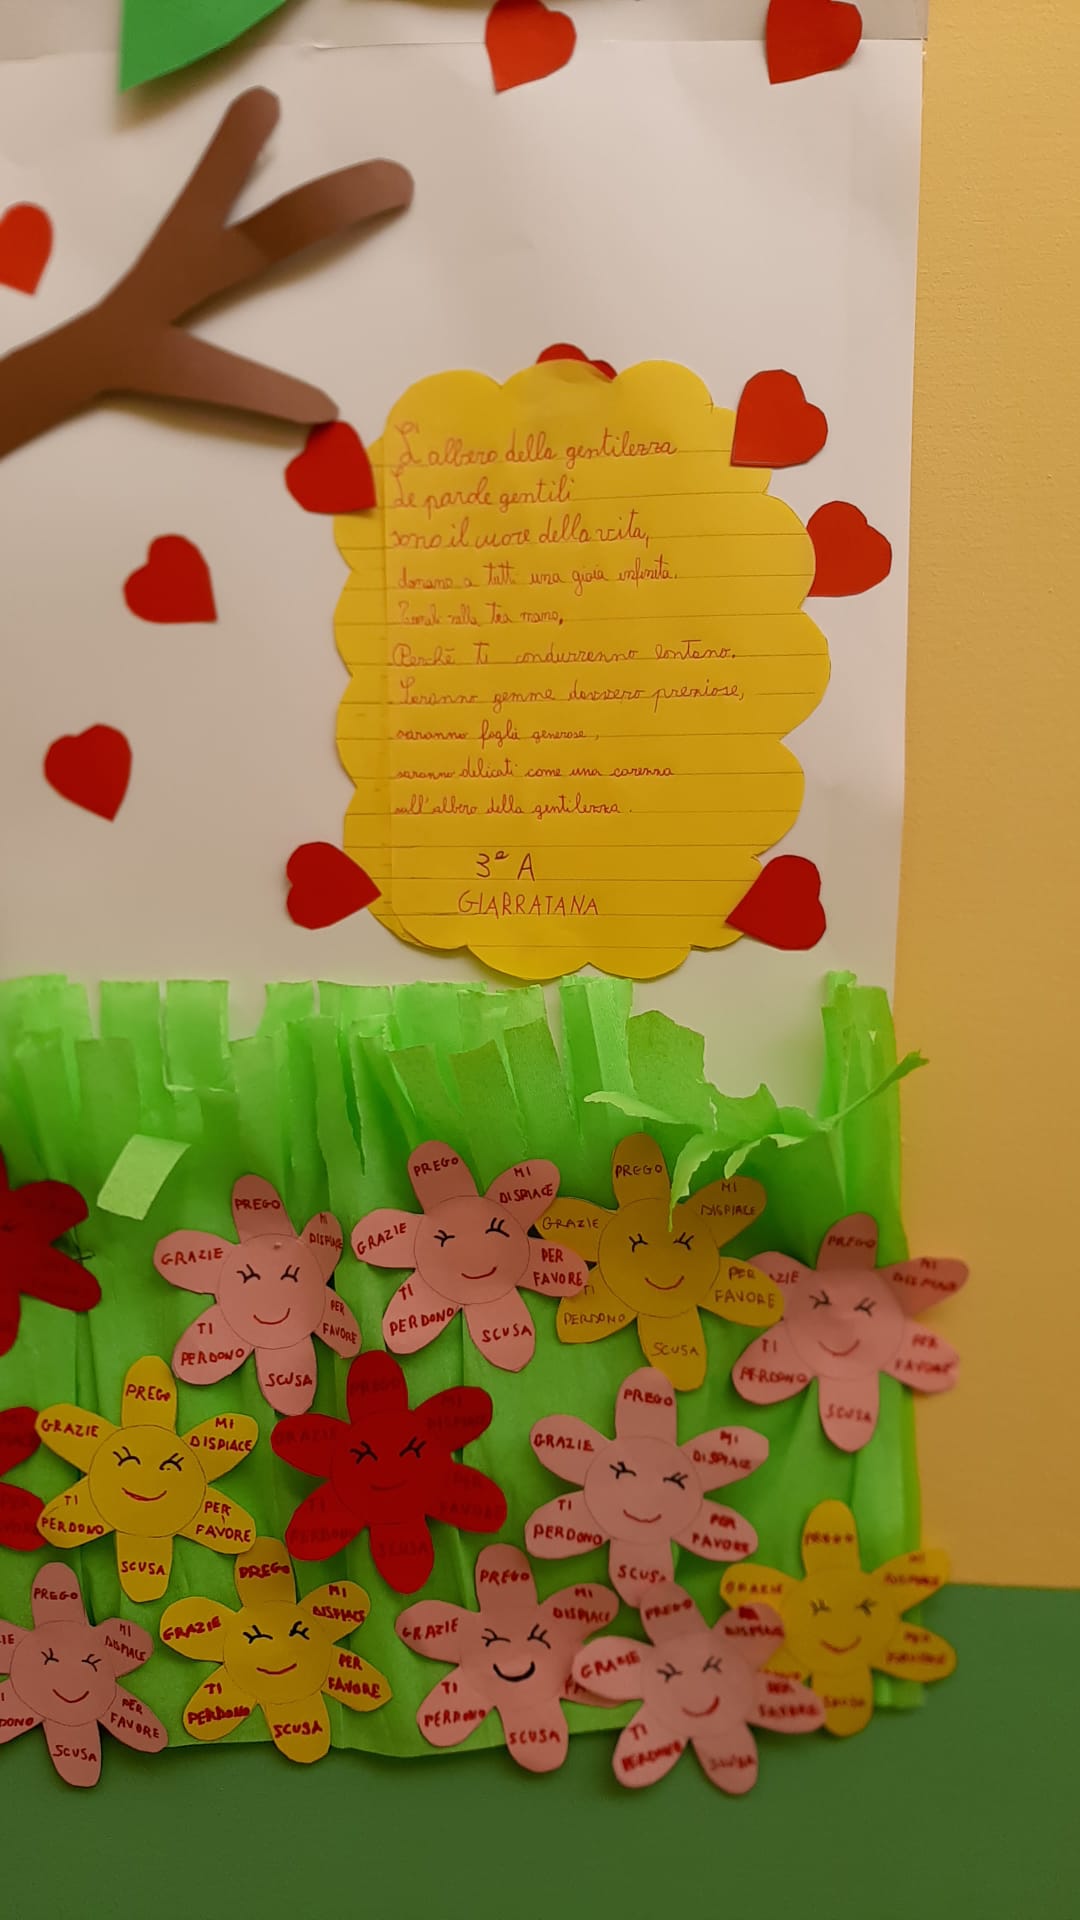 L'albero della gentilezza
Le parole gentili
sono il cuore della vita,
donano a tutti una gioia infinita.
nella tua mano,
Perchè ti condurranno lontano.
Saranno gemme davvero preziose,
saranno foglie generose,
saranno delicati come una carezza
sull'albero della gentilezza.
3ª A
GIARRATANA
PREGO
MI
DISPIACE
PER
FAVORE
SCUSA
TI
PERDONO
GRAZIE
PREGO
MI
DISPIACE
PER
FAVORE
SCUSA
TI
PERDONO
GRAZIE
PREGO
MI
DISPIACE
PER
FAVORE
SCUSA
TI
PERDONO
GRAZIE
PREGO
MI
DISPIACE
PER
FAVORE
SCUSA
TI
PERDONO
AZIE
PREGO
MI
DISPIACE
PER
FAVORE
SCUSA
TI
PERDONO
GRAZIE
PREGO
MI
DISPIACE
PER
FAVORE
SCUSA
TI
PERDONO
GRAZIE
PREGO
MI
DISPIACE
PER
FAVORE
SCUSA
TI
PERDONO
GRAZIE
PREGO
DISPIACE
PER
FAVORE
SCUSA
GRAZIE
PREGO
MI
DISPIACE
PER
FAVORE
SCUSA
DONO
IE
PREGO
MI
DISPIACE
PER
FAVORE
SCUSA
TI
PERDONO
GRAZIE
PREGO
MI
DISPIACE
FA
SCUSA
TI
PERDONO
GRAZIE
PREGO
MI
DISPIACE
PER
FAVORE
SCUSA
TI
PERDONO
GRAZIE
PER